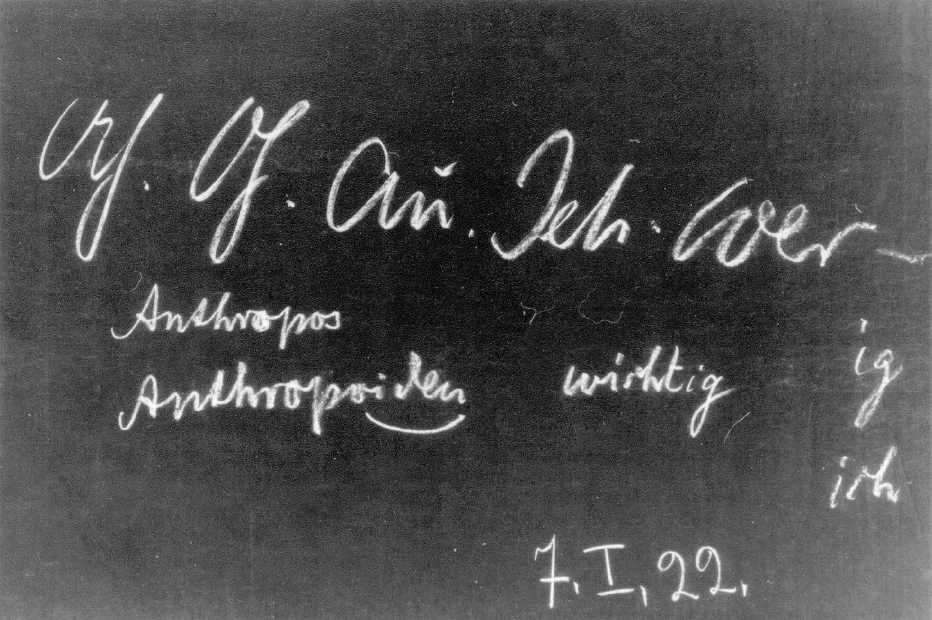 Aŭ. Jeh. Wer-
Anthropos
Anthropoiden wichtig ig
ich
7. I, 22.